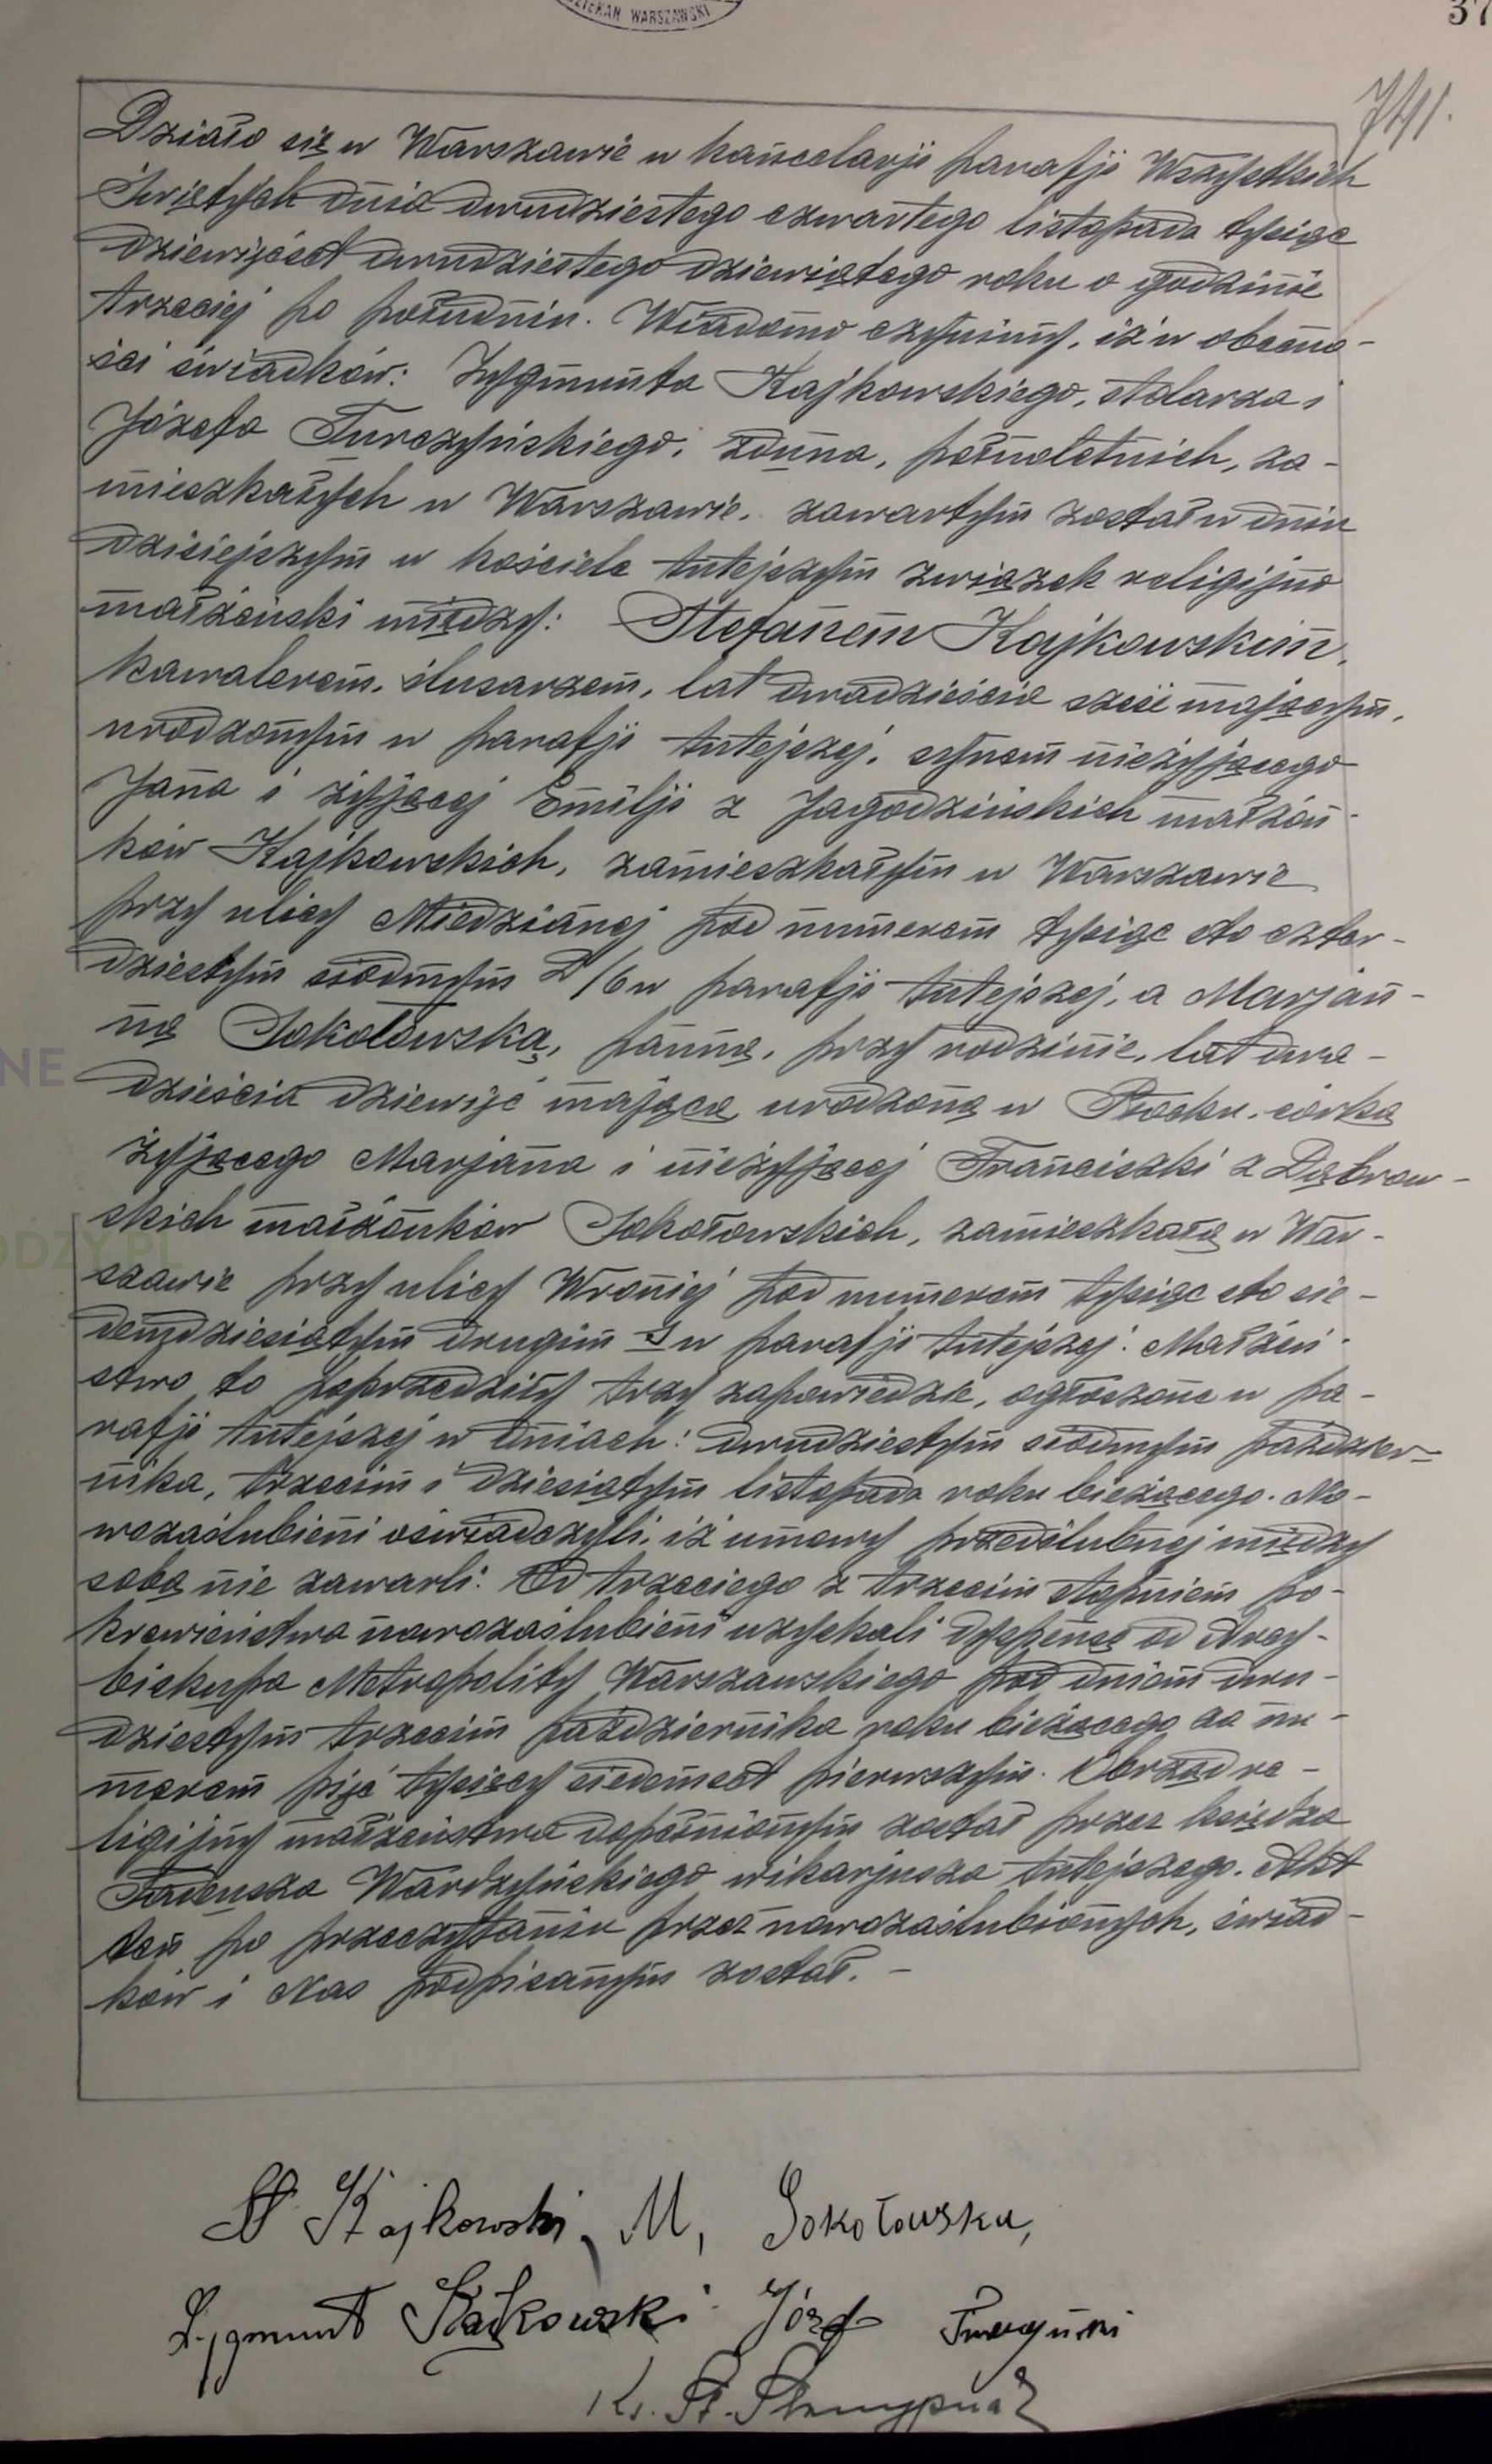 DZIEKAN WARSZAWSKI
37
741.
Działo się w Warszawie w kancelarji parafji Wszystkich
Świętych dnia dwudziestego czwartego listopada tysiąc
dziewięćset dwudziestego dziewiątego roku o godzinie
trzeciej po południu. Wiadomo czynimy, iż w obecno-
ści świadków: Zygmunta Kajkowskiego, stolarza i
Józefa Turczyńskiego, zduna, pełnoletnich, za-
mieszkałych w Warszawie, zawartym został w dniu
dzisiejszym w kościele tutejszym związek religijno
małżeński między: Stefanem Kajkowskim,
kawalerem, ślusarzem, lat dwadzieścia sześć mającym,
urodzonym w parafji tutejszej, synem nieżyjącego
Jana i żyjącej Emilji z Jagodzińskich małżon-
ków Kajkowskich, zamieszkałym w Warszawie
przy ulicy Miedzianej pod numerem tysiąc sto czter-
dziestym siódmym D/6 w parafji tutejszej, a Marjan-
ną Sokołowską, panną, przy rodzinie, lat dwa-
dzieścia dziewięć mającą urodzoną w Płocku, córką
żyjącego Marjana i nieżyjącej Franciszki z Dąbrow-
skich małżonków Sokołowskich, zamieszkałą w War-
szawie przy ulicy Wroniej pod numerem tysiąc sto sie-
demdziesiątym drugim w parafji tutejszej. Małżeń-
stwo to poprzedziły trzy zapowiedzie, ogłoszone w pa-
rafji tutejszej w dniach: dwudziestym siódmym paździer-
nika, trzecim i dziesiątym listopada roku bieżącego. No-
wozaślubieni oświadczyli, iż umowy przedślubnej między
sobą nie zawarli. Od trzeciego z trzecim stopniem po-
krewieństwa nowozaślubieni uzyskali dyspensę od Arcy-
biskupa Metropolity Warszawskiego pod dniem dwu-
dziestym trzecim października roku bieżącego za nu-
merem pięć tysięcy siedemset pierwszym. Obrzęd re-
ligijny małżeństwa dopełnionym został przez księdza
Tadeusza Wardzyńskiego wikarjusza tutejszego. Akt
ten po przeczytaniu przez nowozaślubionych, świad-
ków i Nas podpisanym został. -
St Kajkowski, M, Sokołowska,
Zygmunt Kajkowski Józef
Ks. St.
NE
ODZY.PL